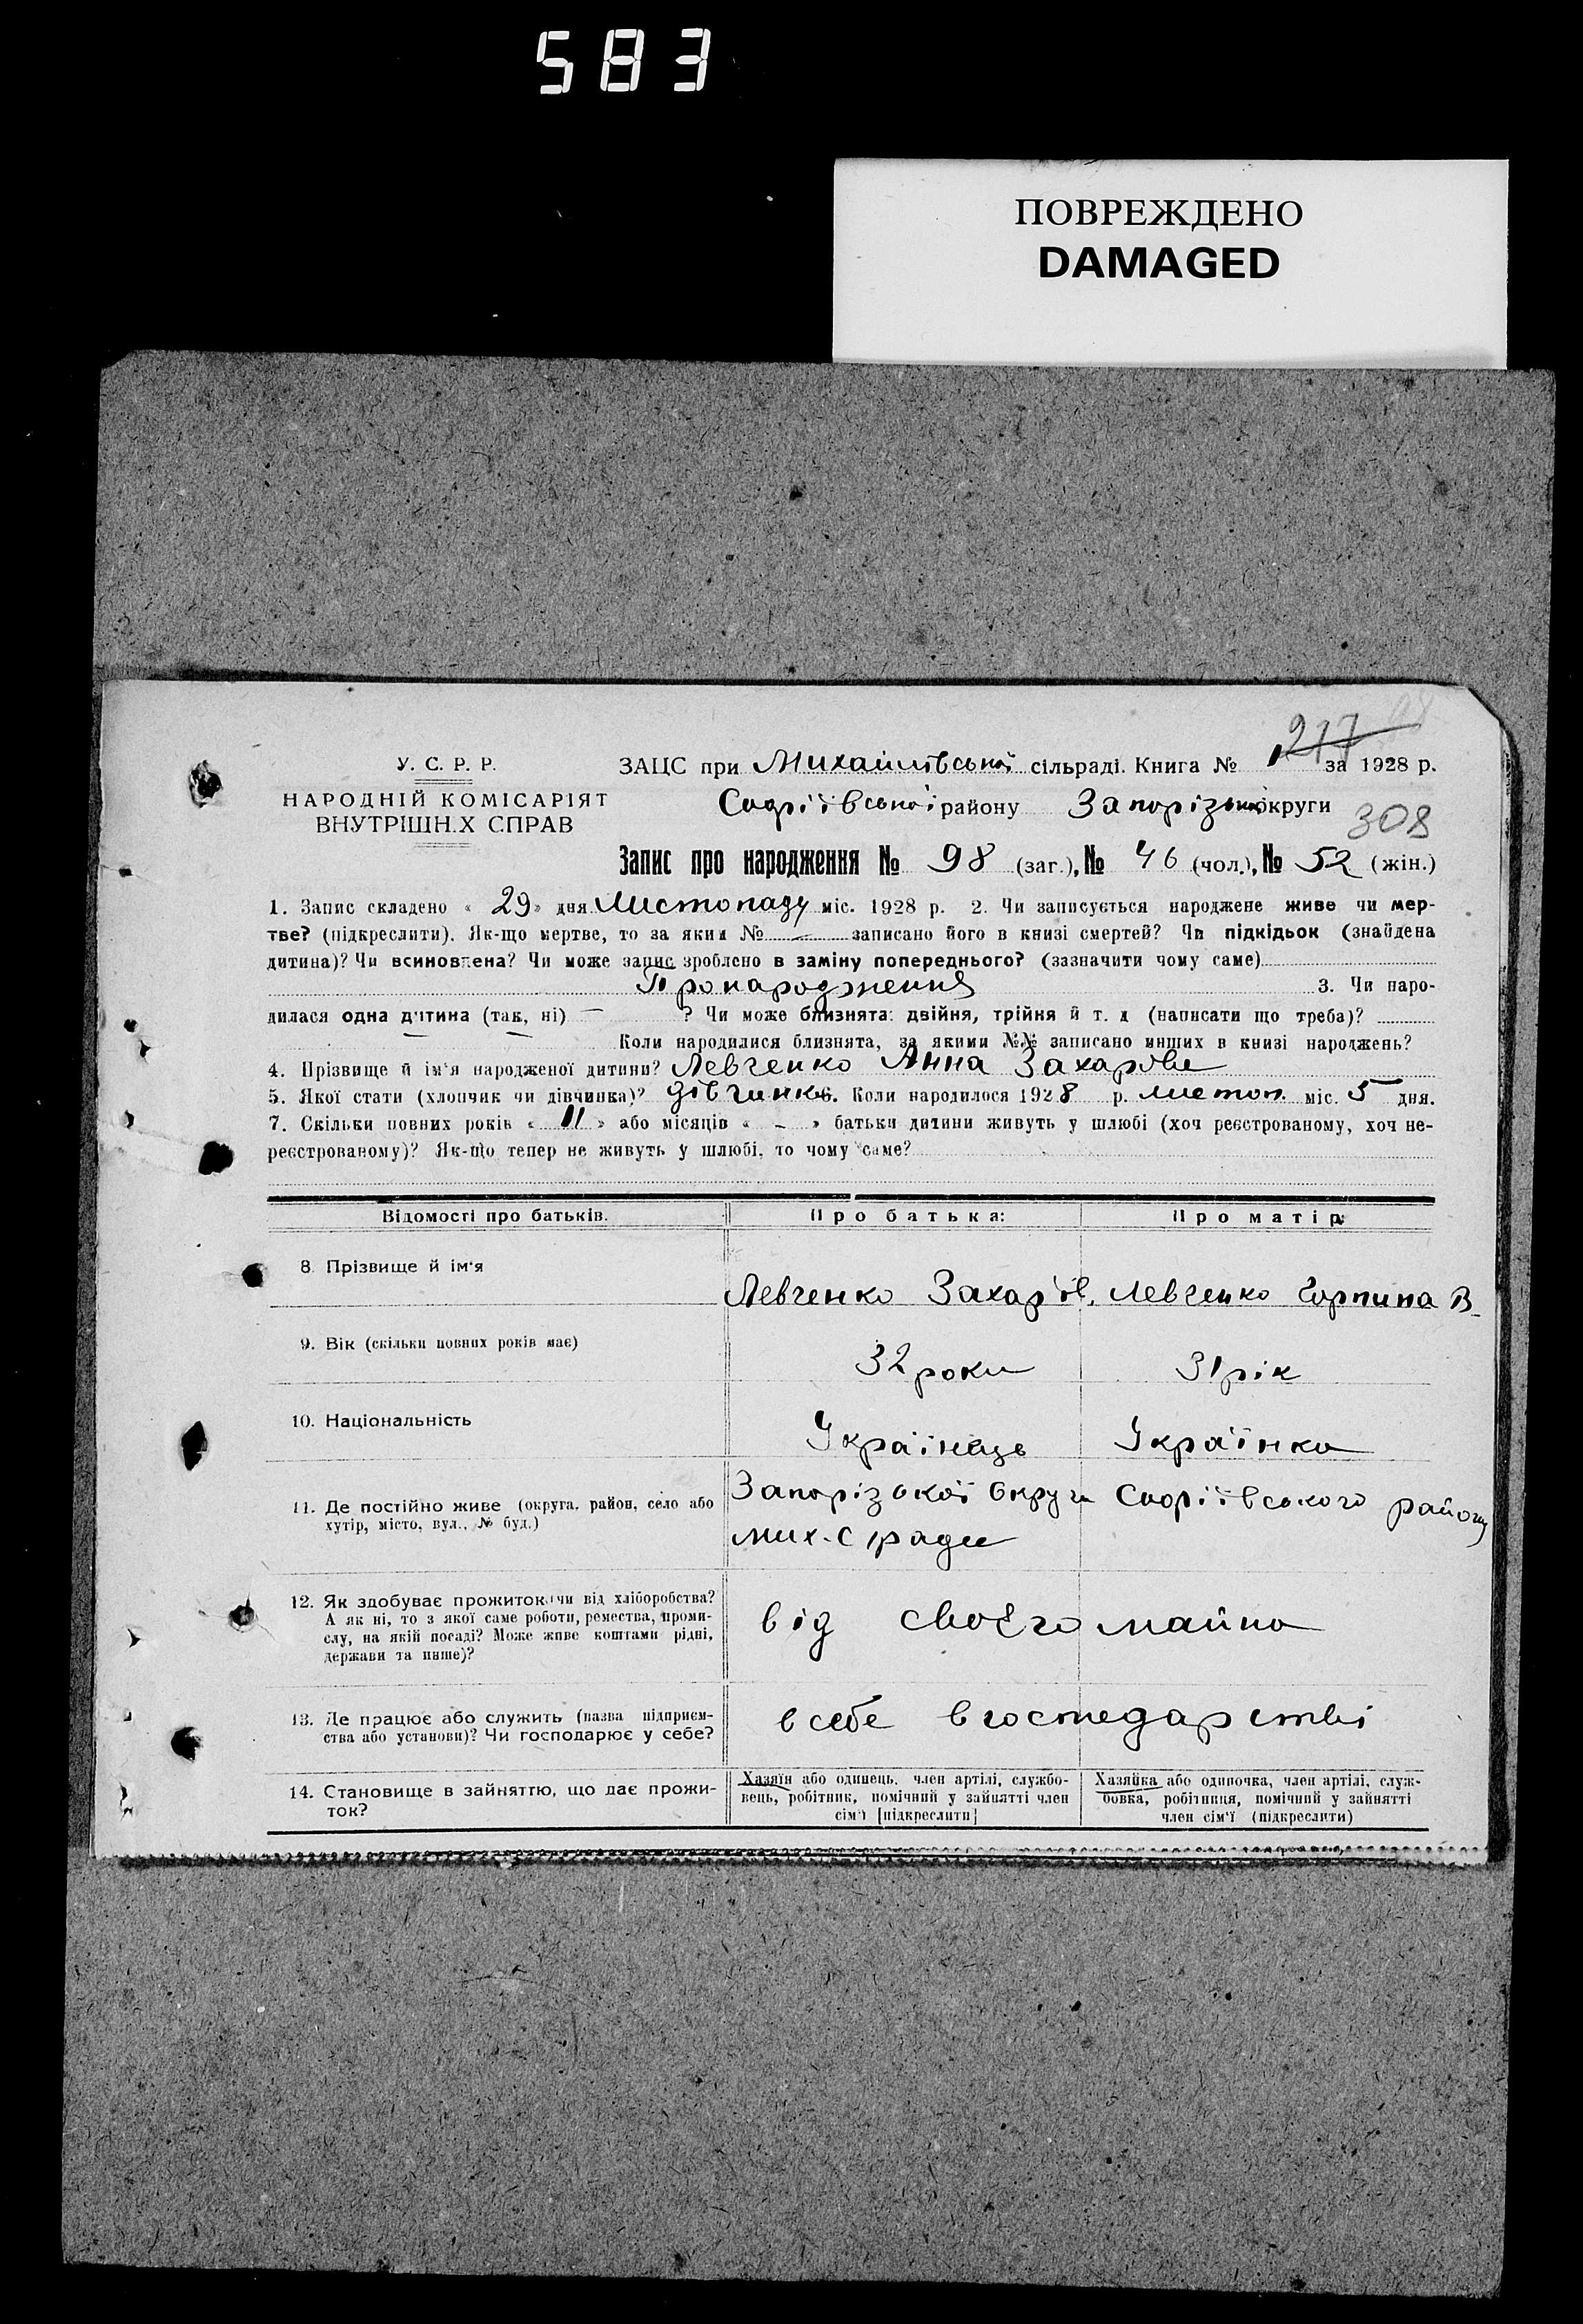 583
ПОВРЕЖДЕНО
DAMAGED
217
У. С. Р. Р.
ЗАЦС при Михайлівській сільраді. Книга № 1 за 1928 р.
НАРОДНІЙ КОМІСАРІЯТ
Софіївської району Запорізької округи
308
ВНУТРІШН.Х СПРАВ
Запис про народження № 98 (заг.), № 46 (чол.), № 52 (жін.)
1. Запис складено « 29 » дня Листопаду міс. 1928 р. 2. Чи записується народжене живе чи мер-
тве? (підкреслити). Як-що мертве, то за яким № — записано його в книзі смертей? Чи підкідьок (знайдена
дитина)? Чи всиновлена? Чи може запис зроблено в заміну попереднього? (зазначити чому саме)
Про народження 3. Чи наро-
дилася одна дитина (так, ні) — ? Чи може близнята: двійня, трійня й т. д (написати що треба)?
Коли народилися близнята, за якими №№ записано инших в книзі народжень?
4. Прізвище й ім'я народженої дитини? Левченко Анна Захарове
5. Якої стати (хлопчик чи дівчинка)? дівчинка. Коли народилося 1928 р. листоп. міс. 5 дня.
7. Скільки повних років « 11 » або місяців « - » батьки дитини живуть у шлюбі (хоч реєстрованому, хоч не-
реєстрованому)? Як-що тепер не живуть у шлюбі, то чому саме?
Відомості про батьків. Про батька: Про матір:
8. Прізвище й ім'я
Левченко Захар Левченко Горпина В
9. Вік (скільки повних років має)
32 роки 31 рік
10. Національність
Українець Українка
11. Де постійно живе (округа, район, село або
хутір, місто, вул., № буд.)
Запорізької Округи Софіївського району
мих. с/ради
12. Як здобуває прожиток: чи від хліборобства?
А як ні, то з якої саме роботи, ремества, проми-
слу, на якій посаді? Може живе коштами рідні,
держави та инше)?
від своєго майна
13. Де працює або служить (назва підприєм-
ства або установи)? Чи господарює у себе?
в себе в господарстві
14. Становище в зайняттю, що дає прожи-
ток?
Хазяїн або одинець, член артілі, службо-
вець, робітник, помічний у зайнятті член
сім'ї [підкреслити]
Хазяйка або одиночка, член артілі, служ-
бовка, робітниця, помічний у зайнятті
член сім'ї (підкреслити)